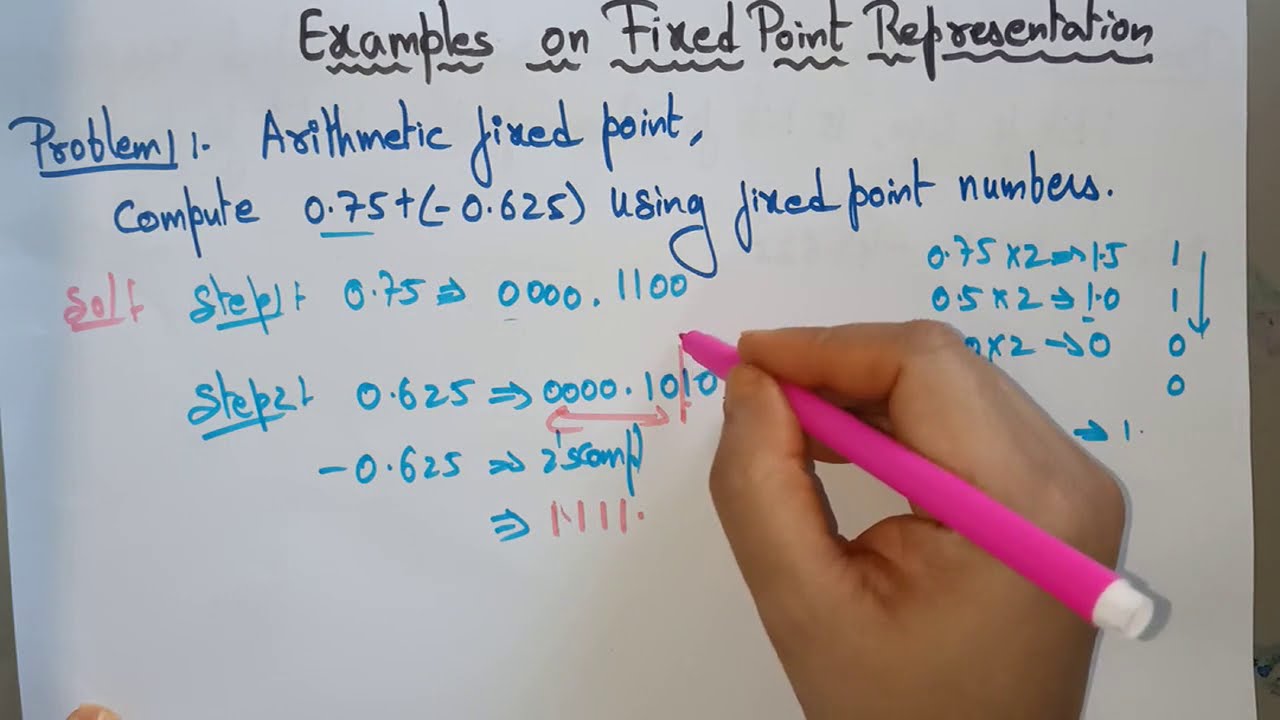 Examples on Fixed Point Representation
Problem 1:. Arithmetic fixed point,
Compute 0.75+(-0.625) using fixed point numbers.
Sol: Step1: 0.75 ⇒ 0000.1100
Step2: 0.625 ⇒ 0000.1010
-0.625 ⇒ 2's comp
⇒ 1111.
0.75 × 2 ⇒ 1.5 1
0.5 × 2 ⇒ 1.0 1
0 × 2 → 0 0
0
⇒ 1.